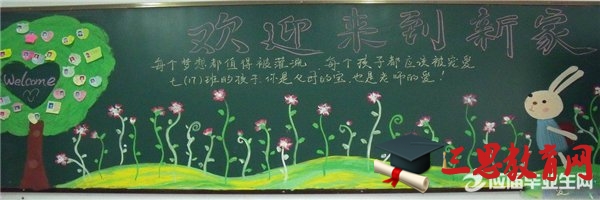 欢迎来到新家
Welcome
每个梦想都值得被灌溉,每个孩子都应该被宠爱
七(17)班的孩子,你是父母的宝,也是老师的爱!
三思教育网
应届毕业生网